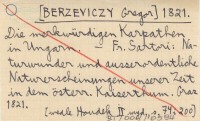 [BERZEVICZY Gregor] 1821.
Die merkwürdigen Karpathen
in Ungarn. - Fr. Sartori: Na-
turwunder und ausserordentliche
Naturerscheinungen unserer Zeit
in dem österr. Kaiserthum. Graz
1821.
II 74-200)